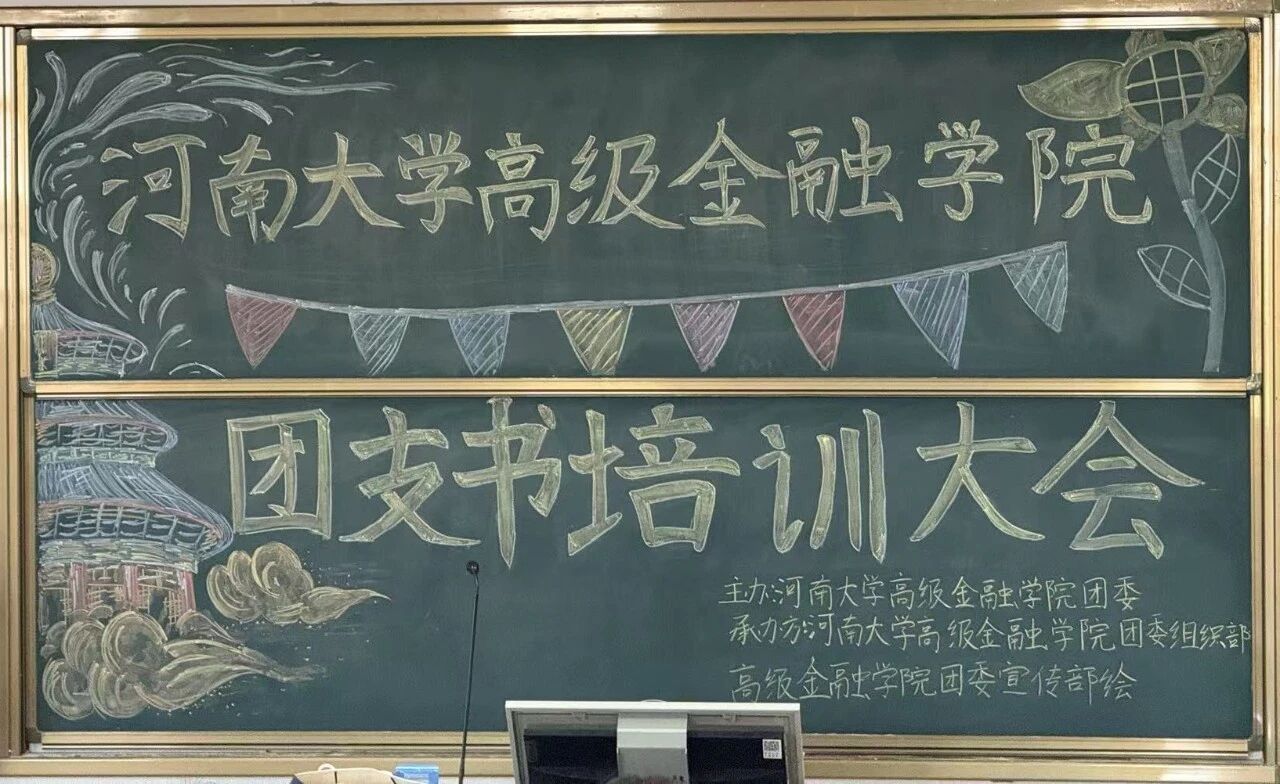 河南大学高级金融学院
团支书培训大会
主办:河南大学高级金融学院团委
承办方:河南大学高级金融学院团委组织部
高级金融学院团委宣传部绘